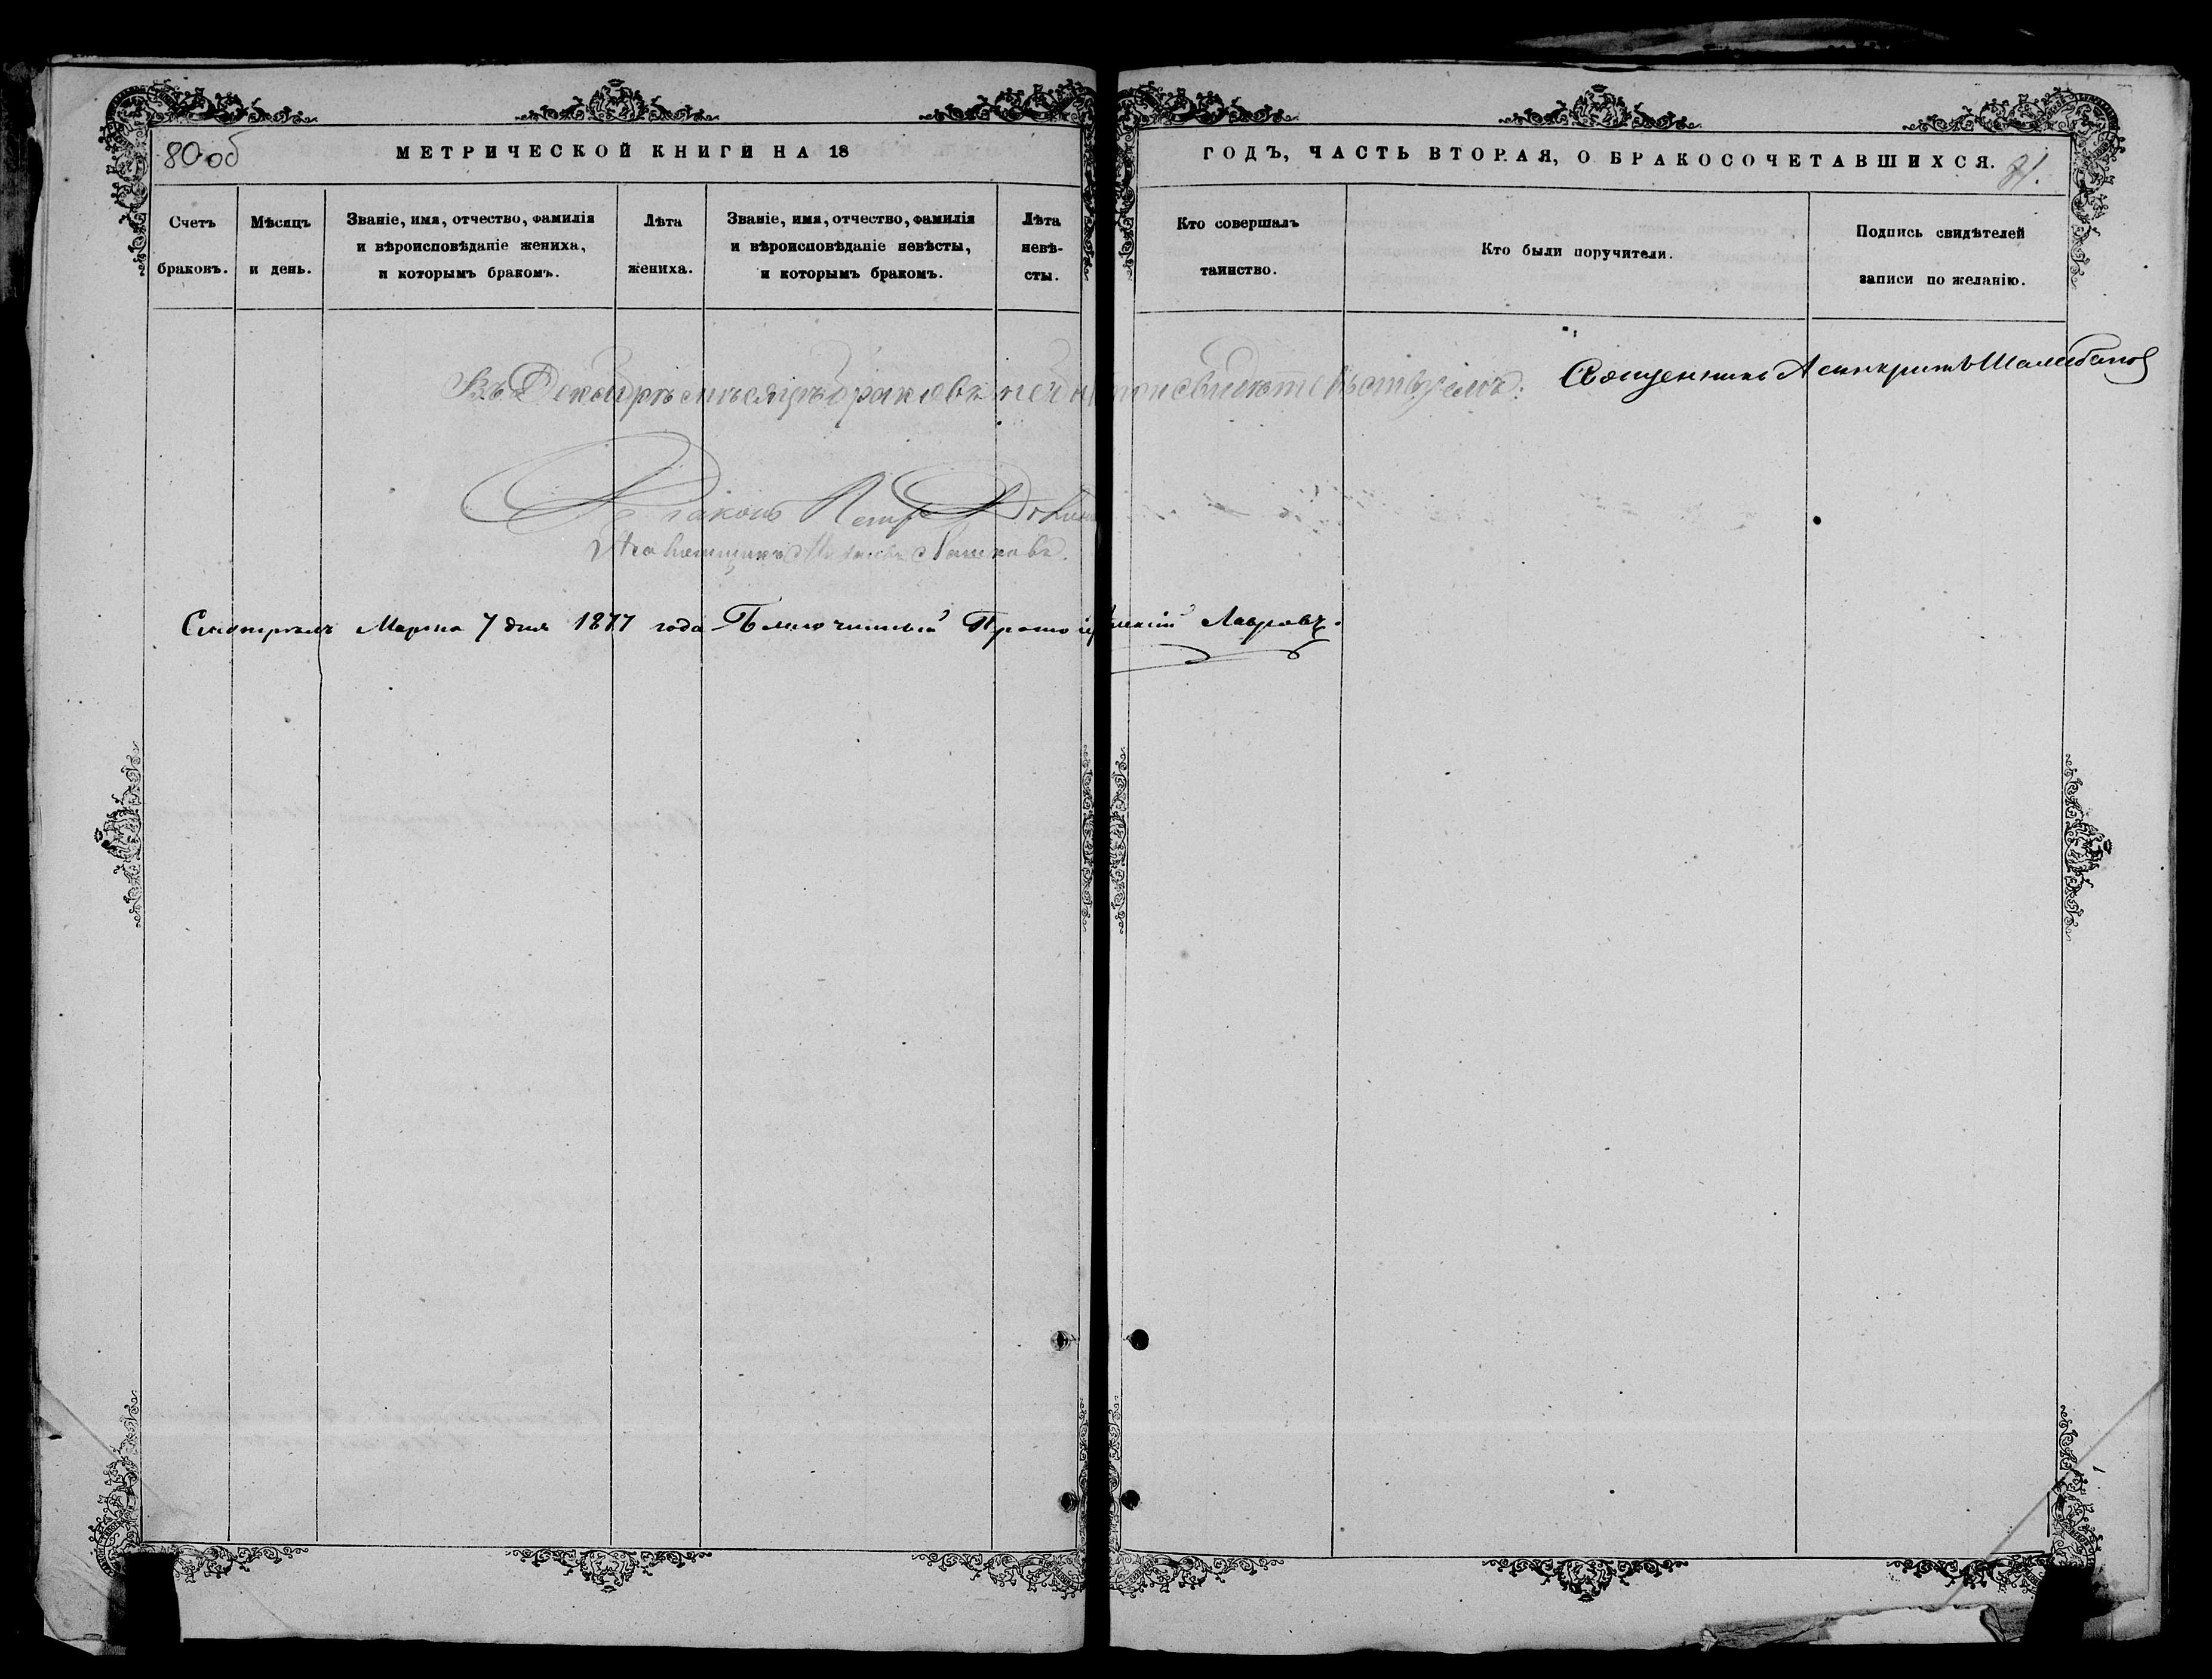 80 об
МЕТРИЧЕСКОЙ КНИГИ НА 18
ГОДЪ, ЧАСТЬ ВТОРАЯ, О БРАКОСОЧЕТАВШИХСЯ.
81.
Счетъ браковъ.
Мѣсяцъ и день.
Званіе, имя, отчество, фамилія и вѣроисповѣданіе жениха, и которымъ бракомъ.
Лѣта жениха.
Званіе, имя, отчество, фамилія и вѣроисповѣданіе невѣсты, и которымъ бракомъ.
Лѣта невѣ-сты.
Кто совершалъ таинство.
Кто были поручители.
Подпись свидѣтелей записи по желанію.
Въ Декабрѣ мѣсяцѣ браковъ свидѣтельствуемъ: Священникъ Асинкритъ
Діаконъ Петръ
Псаломщикъ
Смотрѣлъ Марта 7 дня 1877 года Благочинный Лавровъ.